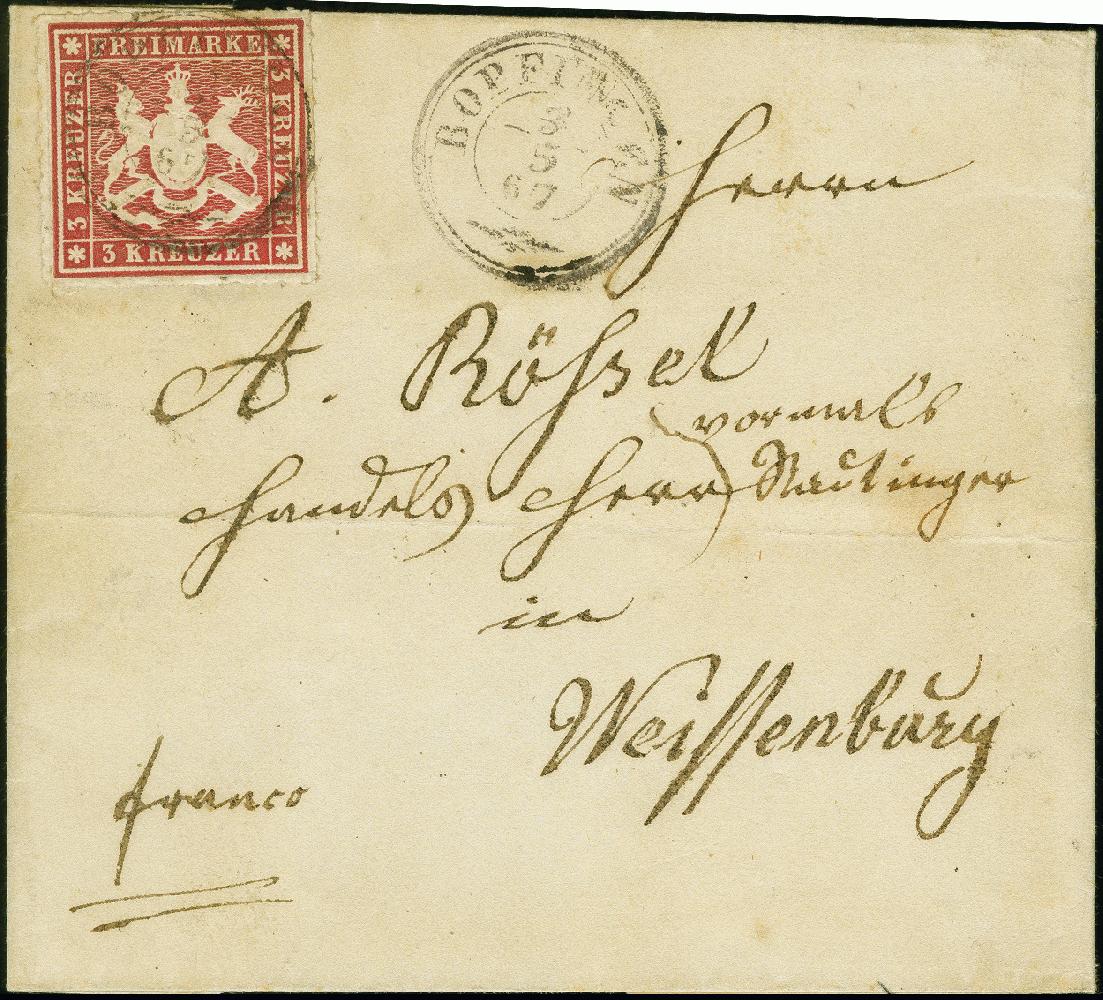 FREIMARKE
3 KREUZER
3 KREUZER
3 KREUZER
BOPFINGEN
3
5
67
Herrn
A. Rößel
vormals
Handels Herr
in
Weissenburg
franco